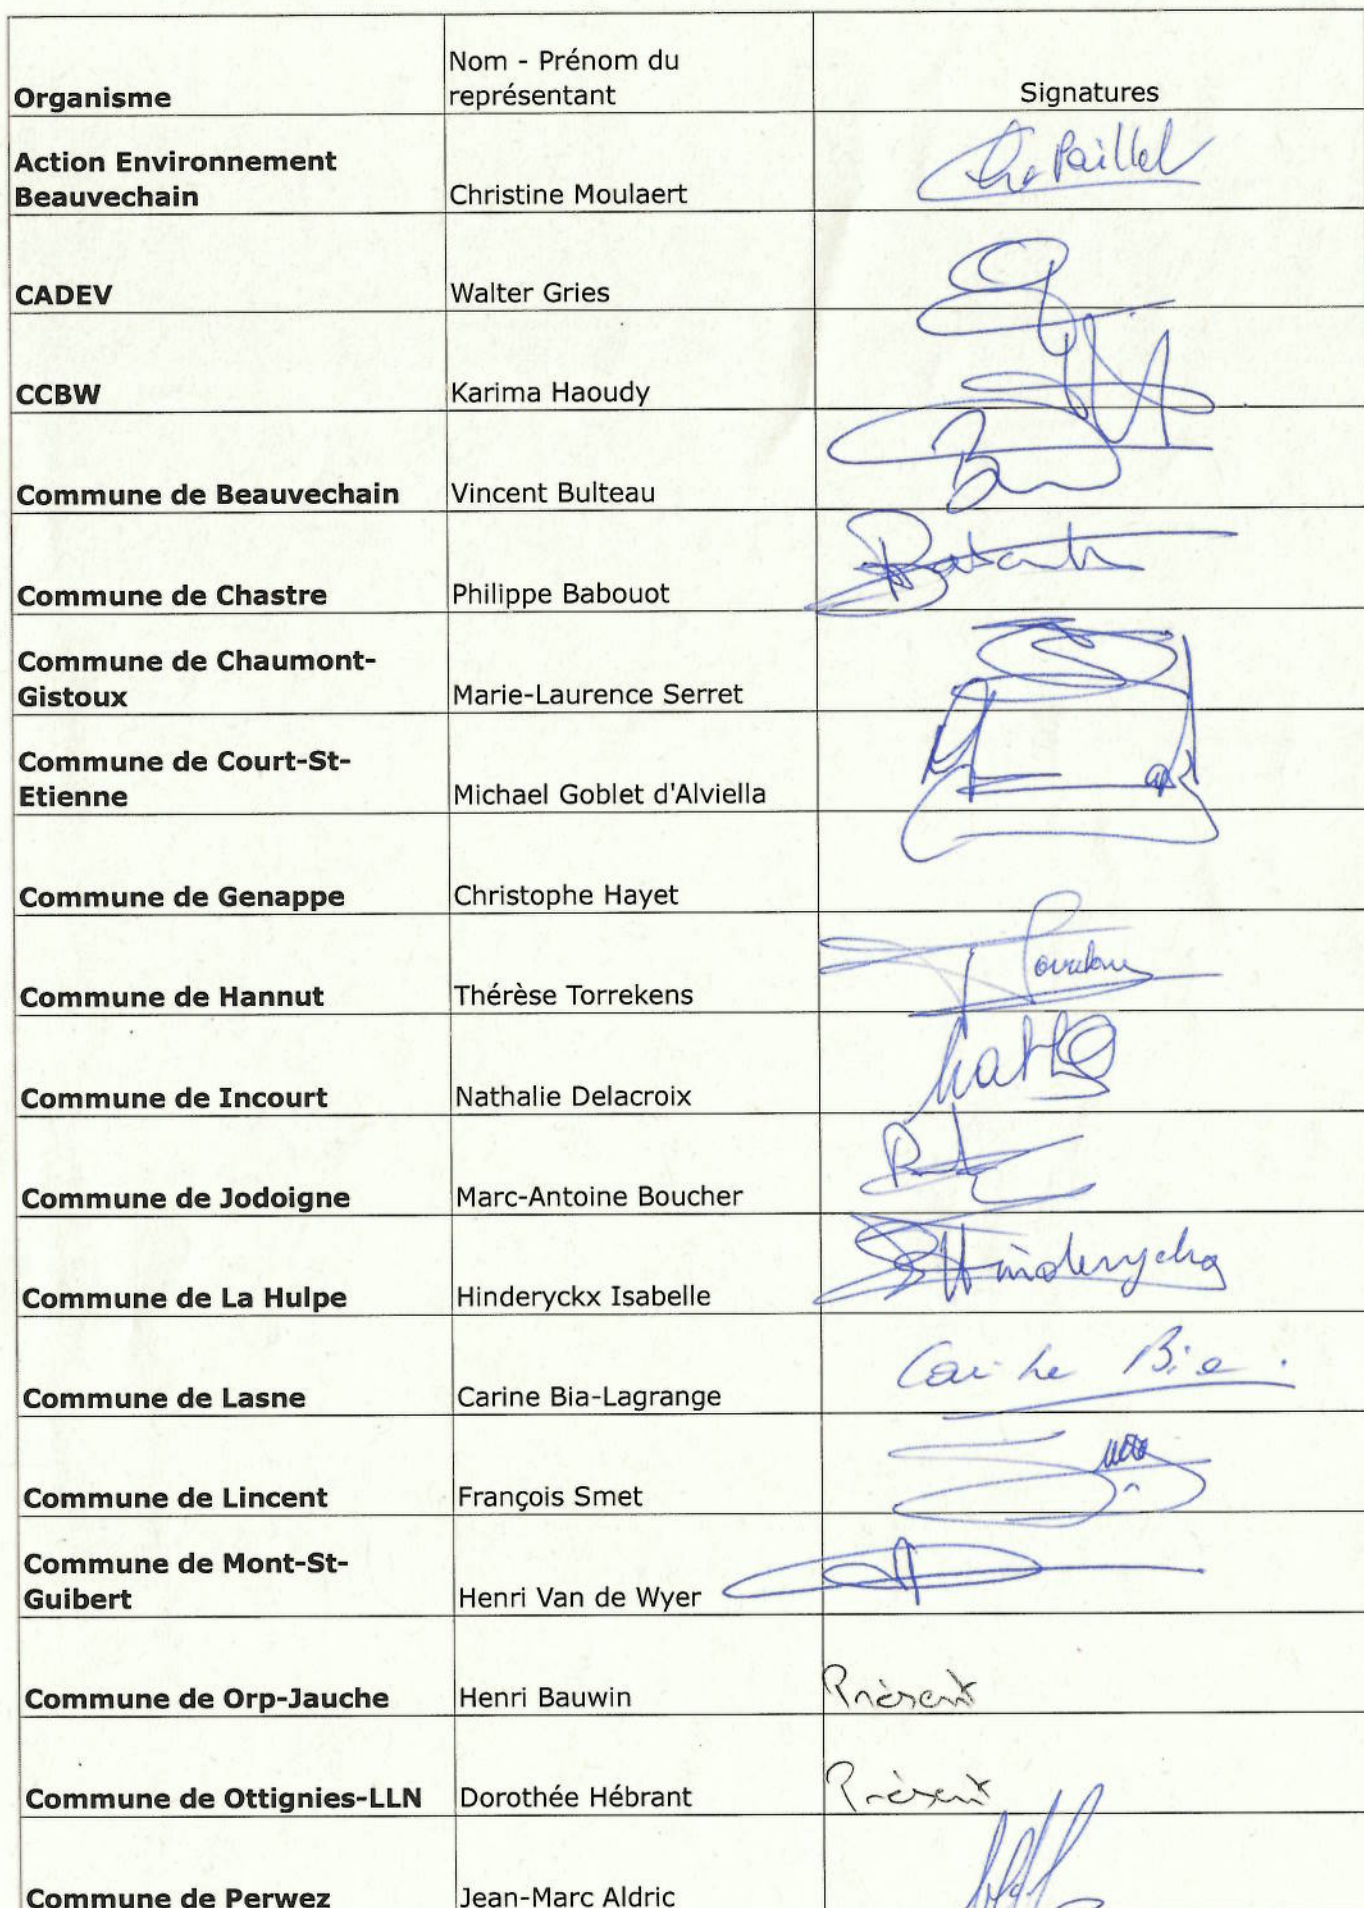 Nom - Prénom du
Organisme représentant Signatures
Action Environnement
Beauvechain Christine Moulaert
CADEV Walter Gries
CCBW Karima Haoudy
Commune de Beauvechain Vincent Bulteau
Commune de Chastre Philippe Babouot
Commune de Chaumont-
Gistoux Marie-Laurence Serret
Commune de Court-St-
Etienne Michael Goblet d'Alviella
Commune de Genappe Christophe Hayet
Commune de Hannut Thérèse Torrekens
Commune de Incourt Nathalie Delacroix
Commune de Jodoigne Marc-Antoine Boucher
Commune de La Hulpe Hinderyckx Isabelle Hinderyckx
Commune de Lasne Carine Bia-Lagrange Carine Bia
Commune de Lincent François Smet
Commune de Mont-St-
Guibert Henri Van de Wyer
Commune de Orp-Jauche Henri Bauwin Présent
Commune de Ottignies-LLN Dorothée Hébrant Présent
Commune de Perwez Jean-Marc Aldric